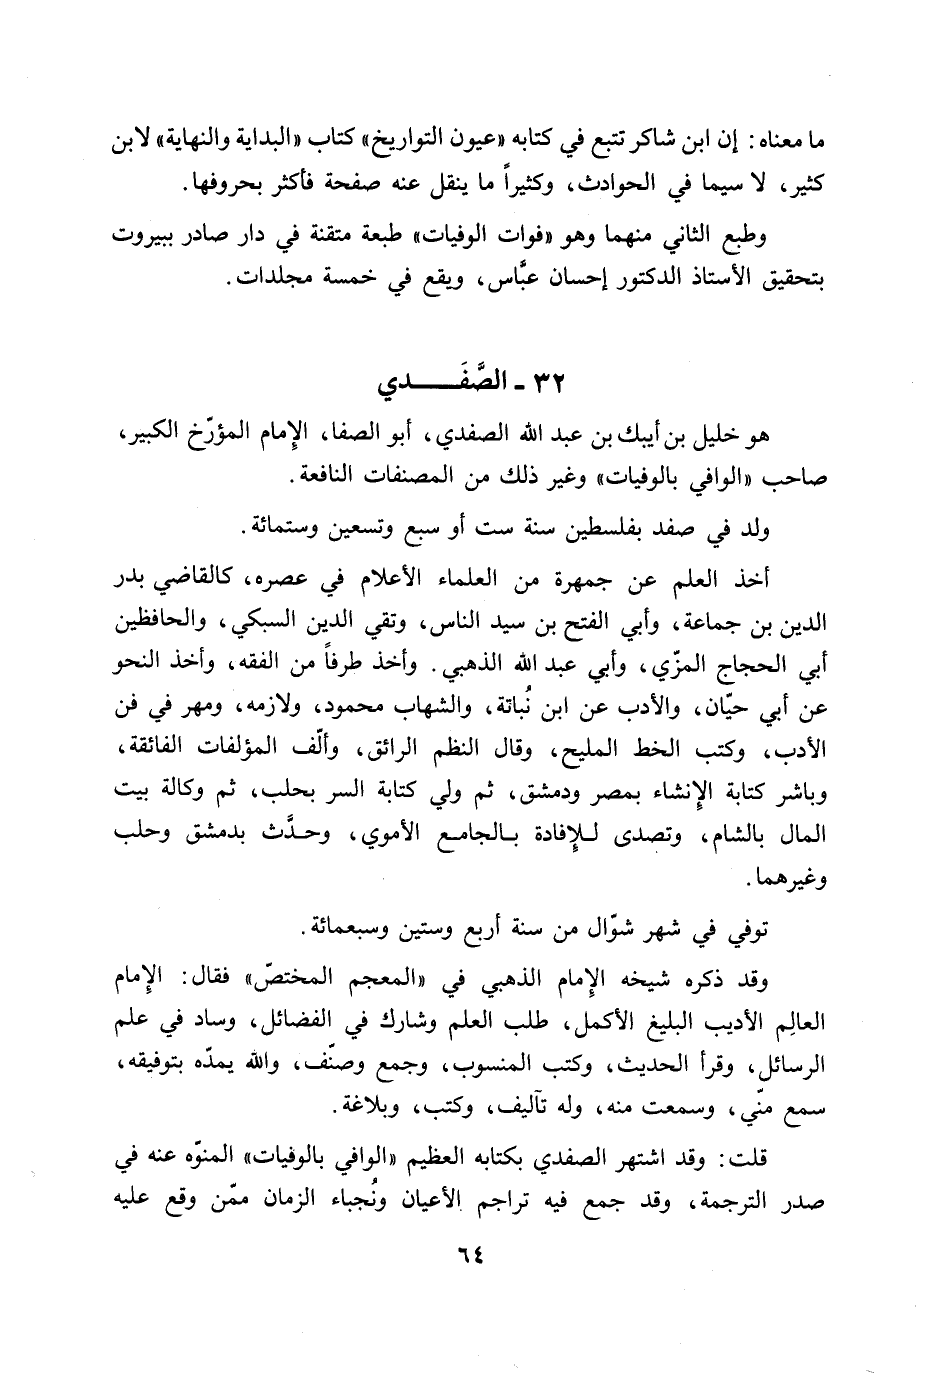 ما معناه: إن ابن شاكر تتبع في كتابه «عيون التواريخ» كتاب «البداية والنهاية» لابن
كثير، لا سيما في الحوادث، وكثيراً ما ينقل عنه صفحة فأكثر بحروفها.
وطبع الثاني منهما وهو «فوات الوفيات» طبعة متقنة في دار صادر ببيروت
بتحقيق الأستاذ الدكتور إحسان عبَّاس، ويقع في خمسة مجلدات.
٣٢ - الصَّفَـــــدي
هو خليل بن أيبك بن عبد الله الصفدي، أبو الصفا، الإمام المؤرّخ الكبير،
صاحب «الوافي بالوفيات» وغير ذلك من المصنفات النافعة.
ولد في صفد بفلسطين سنة ست أو سبع وتسعين وستمائة.
أخذ العلم عن جمهرة من العلماء الأعلام في عصره، كالقاضي بدر
الدين بن جماعة، وأبي الفتح بن سيد الناس، وتقي الدين السبكي، والحافظين
أبي الحجاج المزّي، وأبي عبد الله الذهبي. وأخذ طرفاً من الفقه، وأخذ النحو
عن أبي حيّان، والأدب عن ابن نُباتة، والشهاب محمود، ولازمه، ومهر في فن
الأدب، وكتب الخط المليح، وقال النظم الرائق، وألّف المؤلفات الفائقة،
وباشر كتابة الإنشاء بمصر ودمشق، ثم ولي كتابة السر بحلب، ثم وكالة بيت
المال بالشام، وتصدى للإفادة بالجامع الأموي، وحدَّث بدمشق وحلب
وغيرهما.
توفي في شهر شوّال من سنة أربع وستين وسبعمائة.
وقد ذكره شيخه الإمام الذهبي في «المعجم المختصّ» فقال: الإمام
العالِم الأديب البليغ الأكمل، طلب العلم وشارك في الفضائل، وساد في علم
الرسائل، وقرأ الحديث، وكتب المنسوب، وجمع وصنّف، والله يمدّه بتوفيقه،
سمع منّي، وسمعت منه، وله تآليف، وكتب، وبلاغة.
قلت: وقد اشتهر الصفدي بكتابه العظيم «الوافي بالوفيات» المنوّه عنه في
صدر الترجمة، وقد جمع فيه تراجم الأعيان ونُجباء الزمان ممّن وقع عليه
٦٤